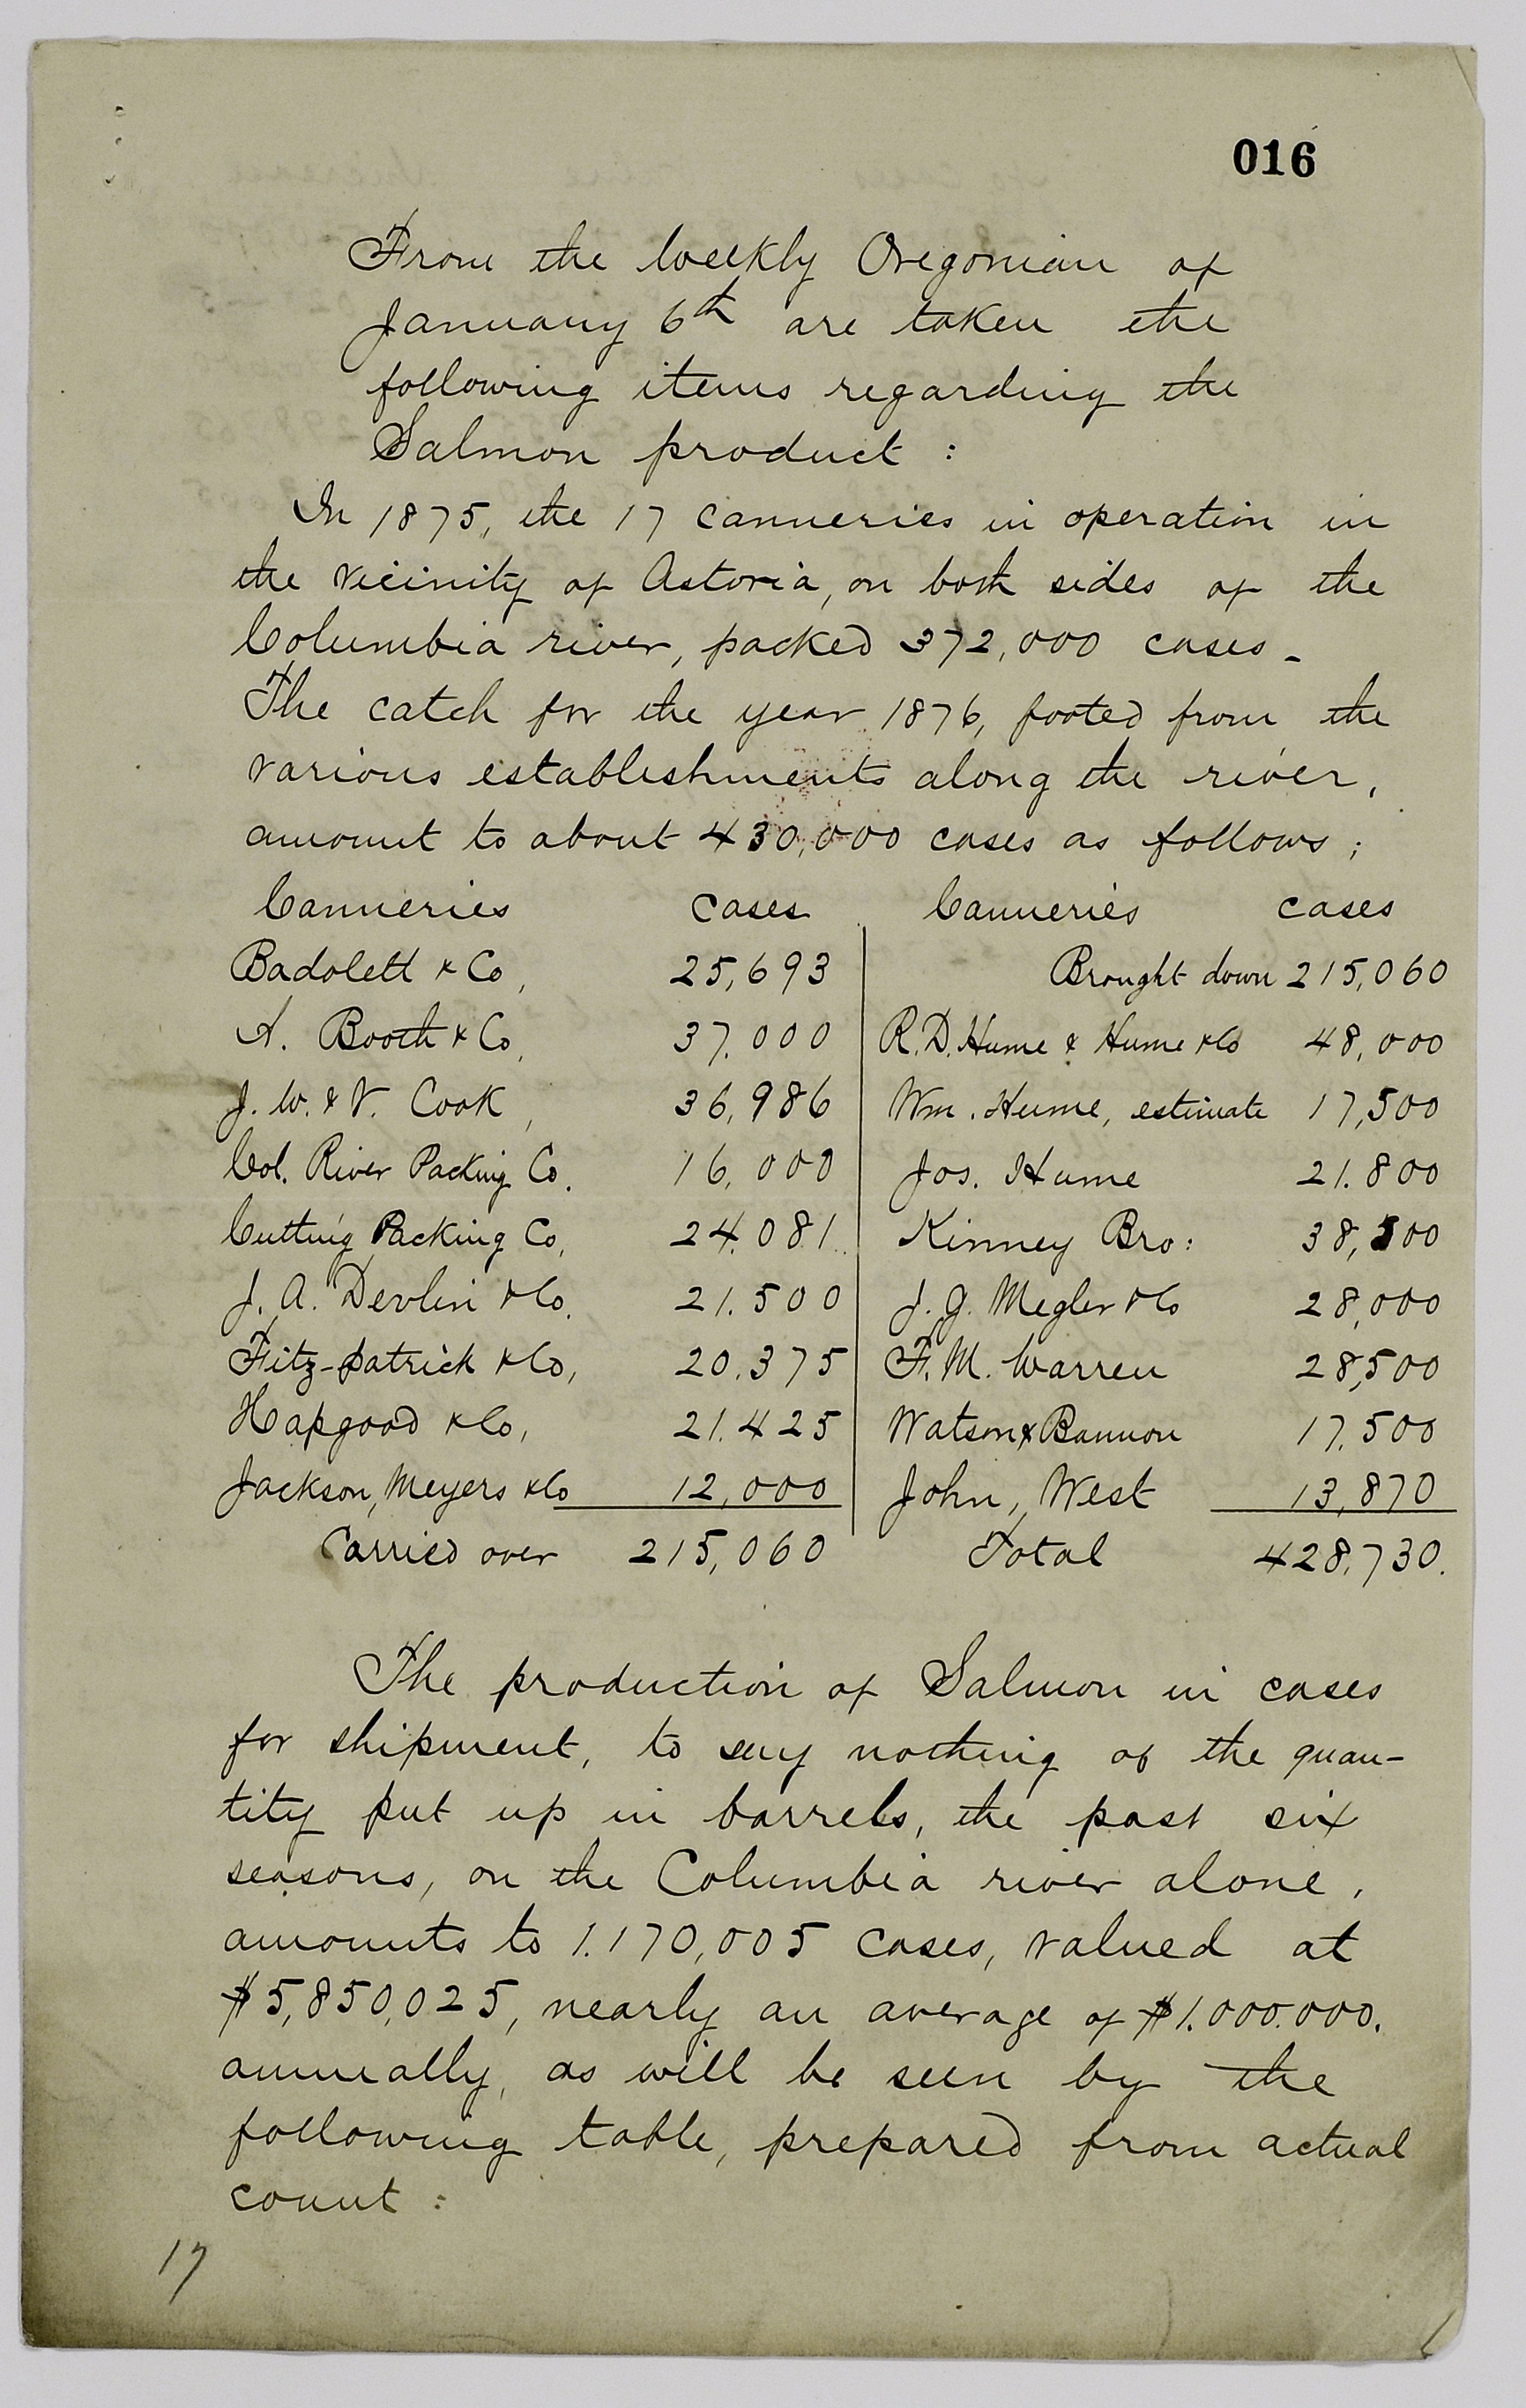 016
From the Weekly Oregonian of
January 6th are taken the
following items regarding the
Salmon product :
In 1875, the 17 canneries in operation in
the vicinity of Astoria, on both sides of the
Columbia river, packed 372,000 cases -
The catch for the year 1876, footed from the
various establishments along the river,
amount to about 430,000 cases as follows ;
Canneries cases Canneries cases
Badolett & Co, 25,693 Brought down 215,060
A. Booth & Co, 37,000 R.D. Hume & Hume & Co 48,000
J. W. & V. Cook, 36,986 Wm. Hume, estimate 17,500
Col. River Packing Co. 16,000 Jos. Hume 21.800
Cutting Packing Co, 24,081 Kinney Bro: 38,500
J. A. Devlin & Co. 21.500 J. G. Megler & Co 28,000
Fitz-patrick & Co, 20.375 F. M. Warren 28,500
Hapgood & Co, 21.425 Watson & Bannon 17,500
Jackson, Meyers & Co 12,000 John, West 13,870
Carried over 215,060 Total 428,730.
The production of Salmon in cases
for shipment, to say nothing of the quan-
tity put up in barrels, the past six
seasons, on the Columbia river alone,
amounts to 1.170,005 cases, valued at
$5,850,025, nearly an average of $1.000.000.
annually, as will be seen by the
following table, prepared from actual
count :
17